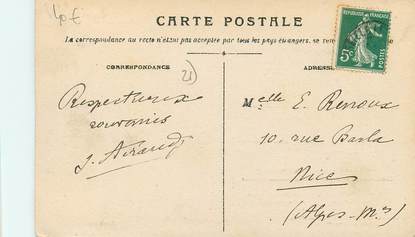 40 €
CARTE POSTALE
La correspondance au recto n'étant pas acceptée par tous les pays étrangers, se
CORRESPONDANCE
21)
ADRESSE
REPUBLIQUE FRANÇAISE
5c
POSTES
Respectueux
souvenirs
Melle E. Renoux
10, rue Barla
Nice
(Alpes-Mmes)